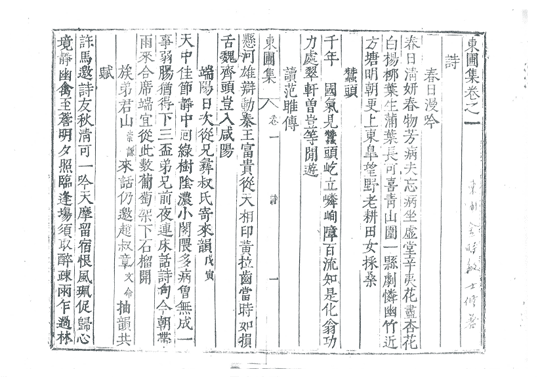 東圃集卷之一
詩
春日漫吟
春日清妍春物芳病夫忘病坐虛堂辛夷花盡杏花
白楊柳葉生蒲葉長可喜青山圍一縣劇憐幽竹近
方塘明朝更上東皐望野老耕田女採桑
蠶頭
千年國氣見蠶頭屹立嶙峋障百流知是化翁功
力處翠軒曾豈等閒遊
讀范雎傳
東圃集 卷一 詩 一
懸河雄辯動秦王富貴從天相印黃拉齒當時如損
舌魏齊頭豈入咸陽
端陽日次從兄彛叔氏寄來韻戊寅
天中佳節靜中回綠樹陰濃小閣隈多病曾無成一
事弱腸猶得下三盃弟兄前夜連床話詩句今朝帶
雨來合席端宜從此數葡萄架下石榴開
族弟君山 來話仍邀趙叔章文命抽韻共
賦
許馬邀詩友秋淸可一吟天摩留宿恨風珮促歸心
境靜幽禽至簷明夕照臨逢場須取醉疎雨乍過林